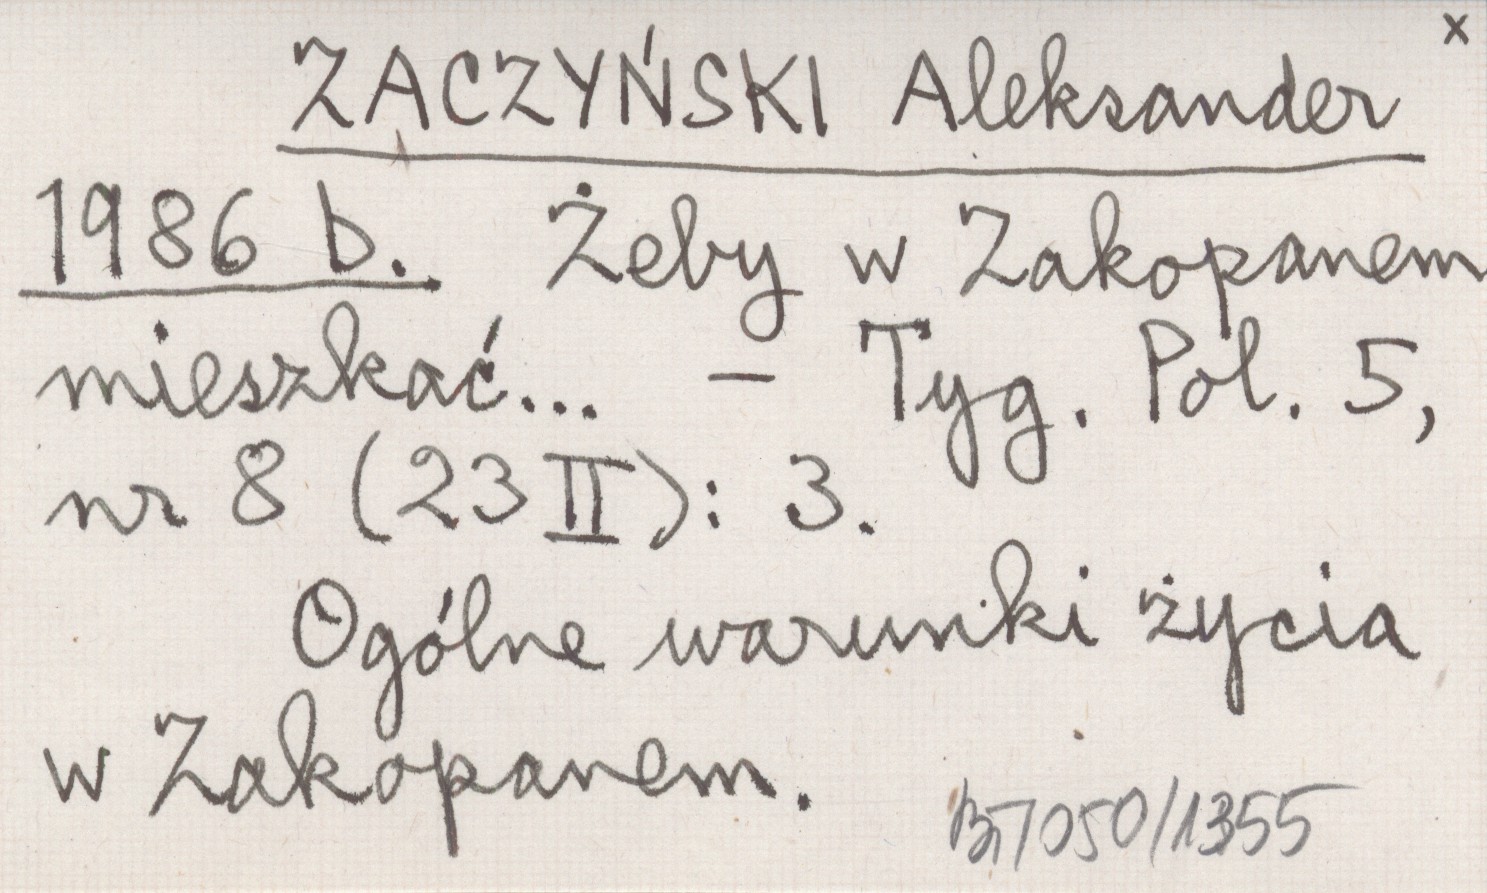 x
ZACZYŃSKI Aleksander
1986 b. Żeby w Zakopanem
mieszkać... – Tyg. Pol. 5,
nr 8 (23 II): 3.
Ogólne warunki życia
w Zakopanem.
7050/1355